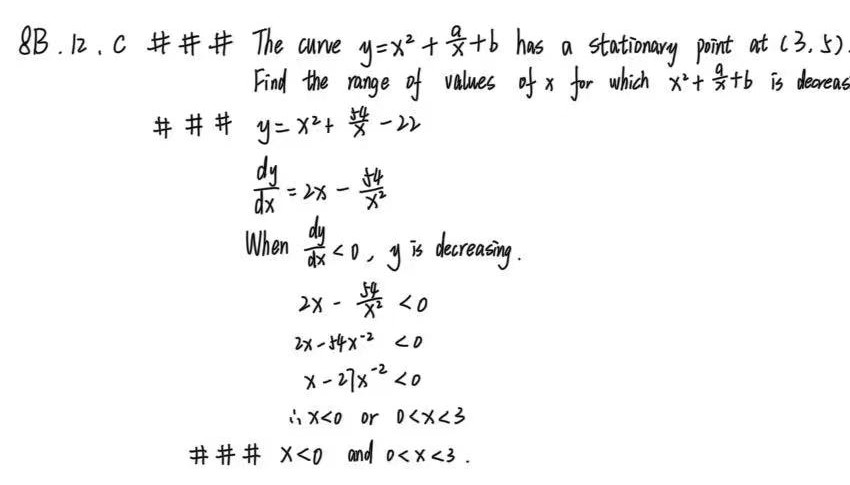 8B.12.C ### The curve y=x²+a/x+b has a stationary point at (3,5).
Find the range of values of x for which x²+a/x+b is decreas
### y=x²+54/x-22
dy/dx=2x-54/x²
When dy/dx<0, y is decreasing.
2x-54/x²<0
2x-54x⁻²<0
x-27x⁻²<0
∴x<0 or 0<x<3
### x<0 and 0<x<3.